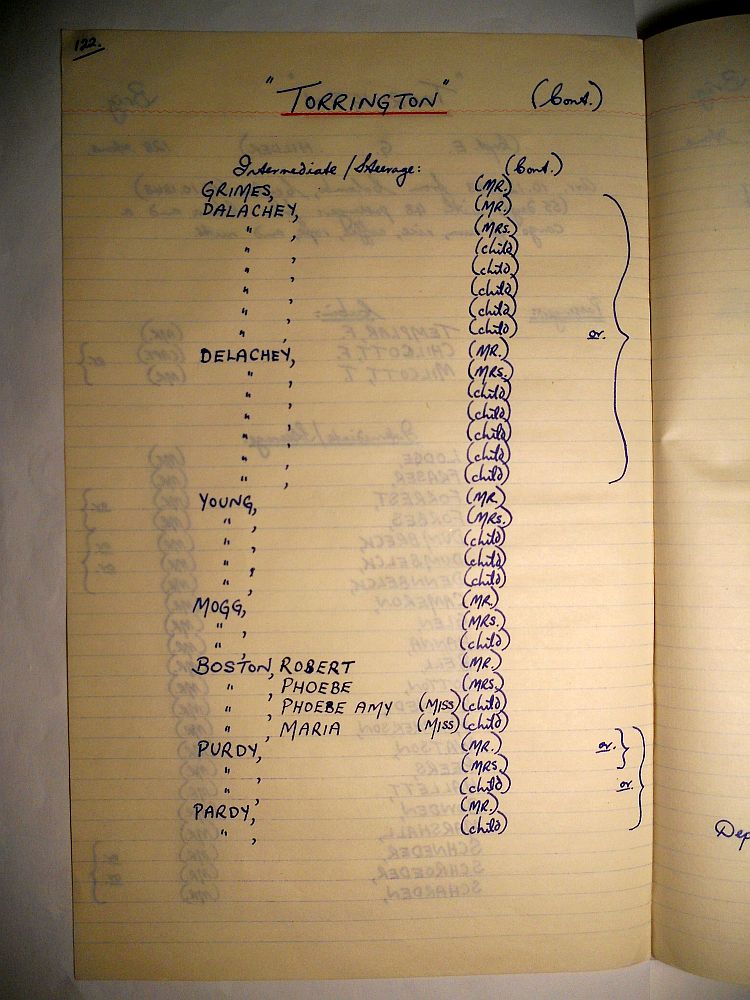 122.
"TORRINGTON" (Cont.)
Intermediate/Steerage: (Cont.)
GRIMES, (MR.)
DALACHEY, (MR.)
" , (MRS.)
" , (child)
" , (child)
" , (child)
" , (child)
" , (child) or.
DELACHEY, (MR.)
" , (MRS.)
" , (child)
" , (child)
" , (child)
" , (child)
" , (child)
YOUNG, (MR.)
" , (MRS.)
" , (child)
" , (child)
" , (child)
MOGG, (MR.)
" , (MRS.)
" , (child)
BOSTON, ROBERT (MR.)
" , PHOEBE (MRS.)
" , PHOEBE AMY (MISS) (child)
" , MARIA (MISS) (child)
PURDY, (MR.) or.
" , (MRS.)
" , (child) or.
PARDY, (MR.)
" , (child)
Dep